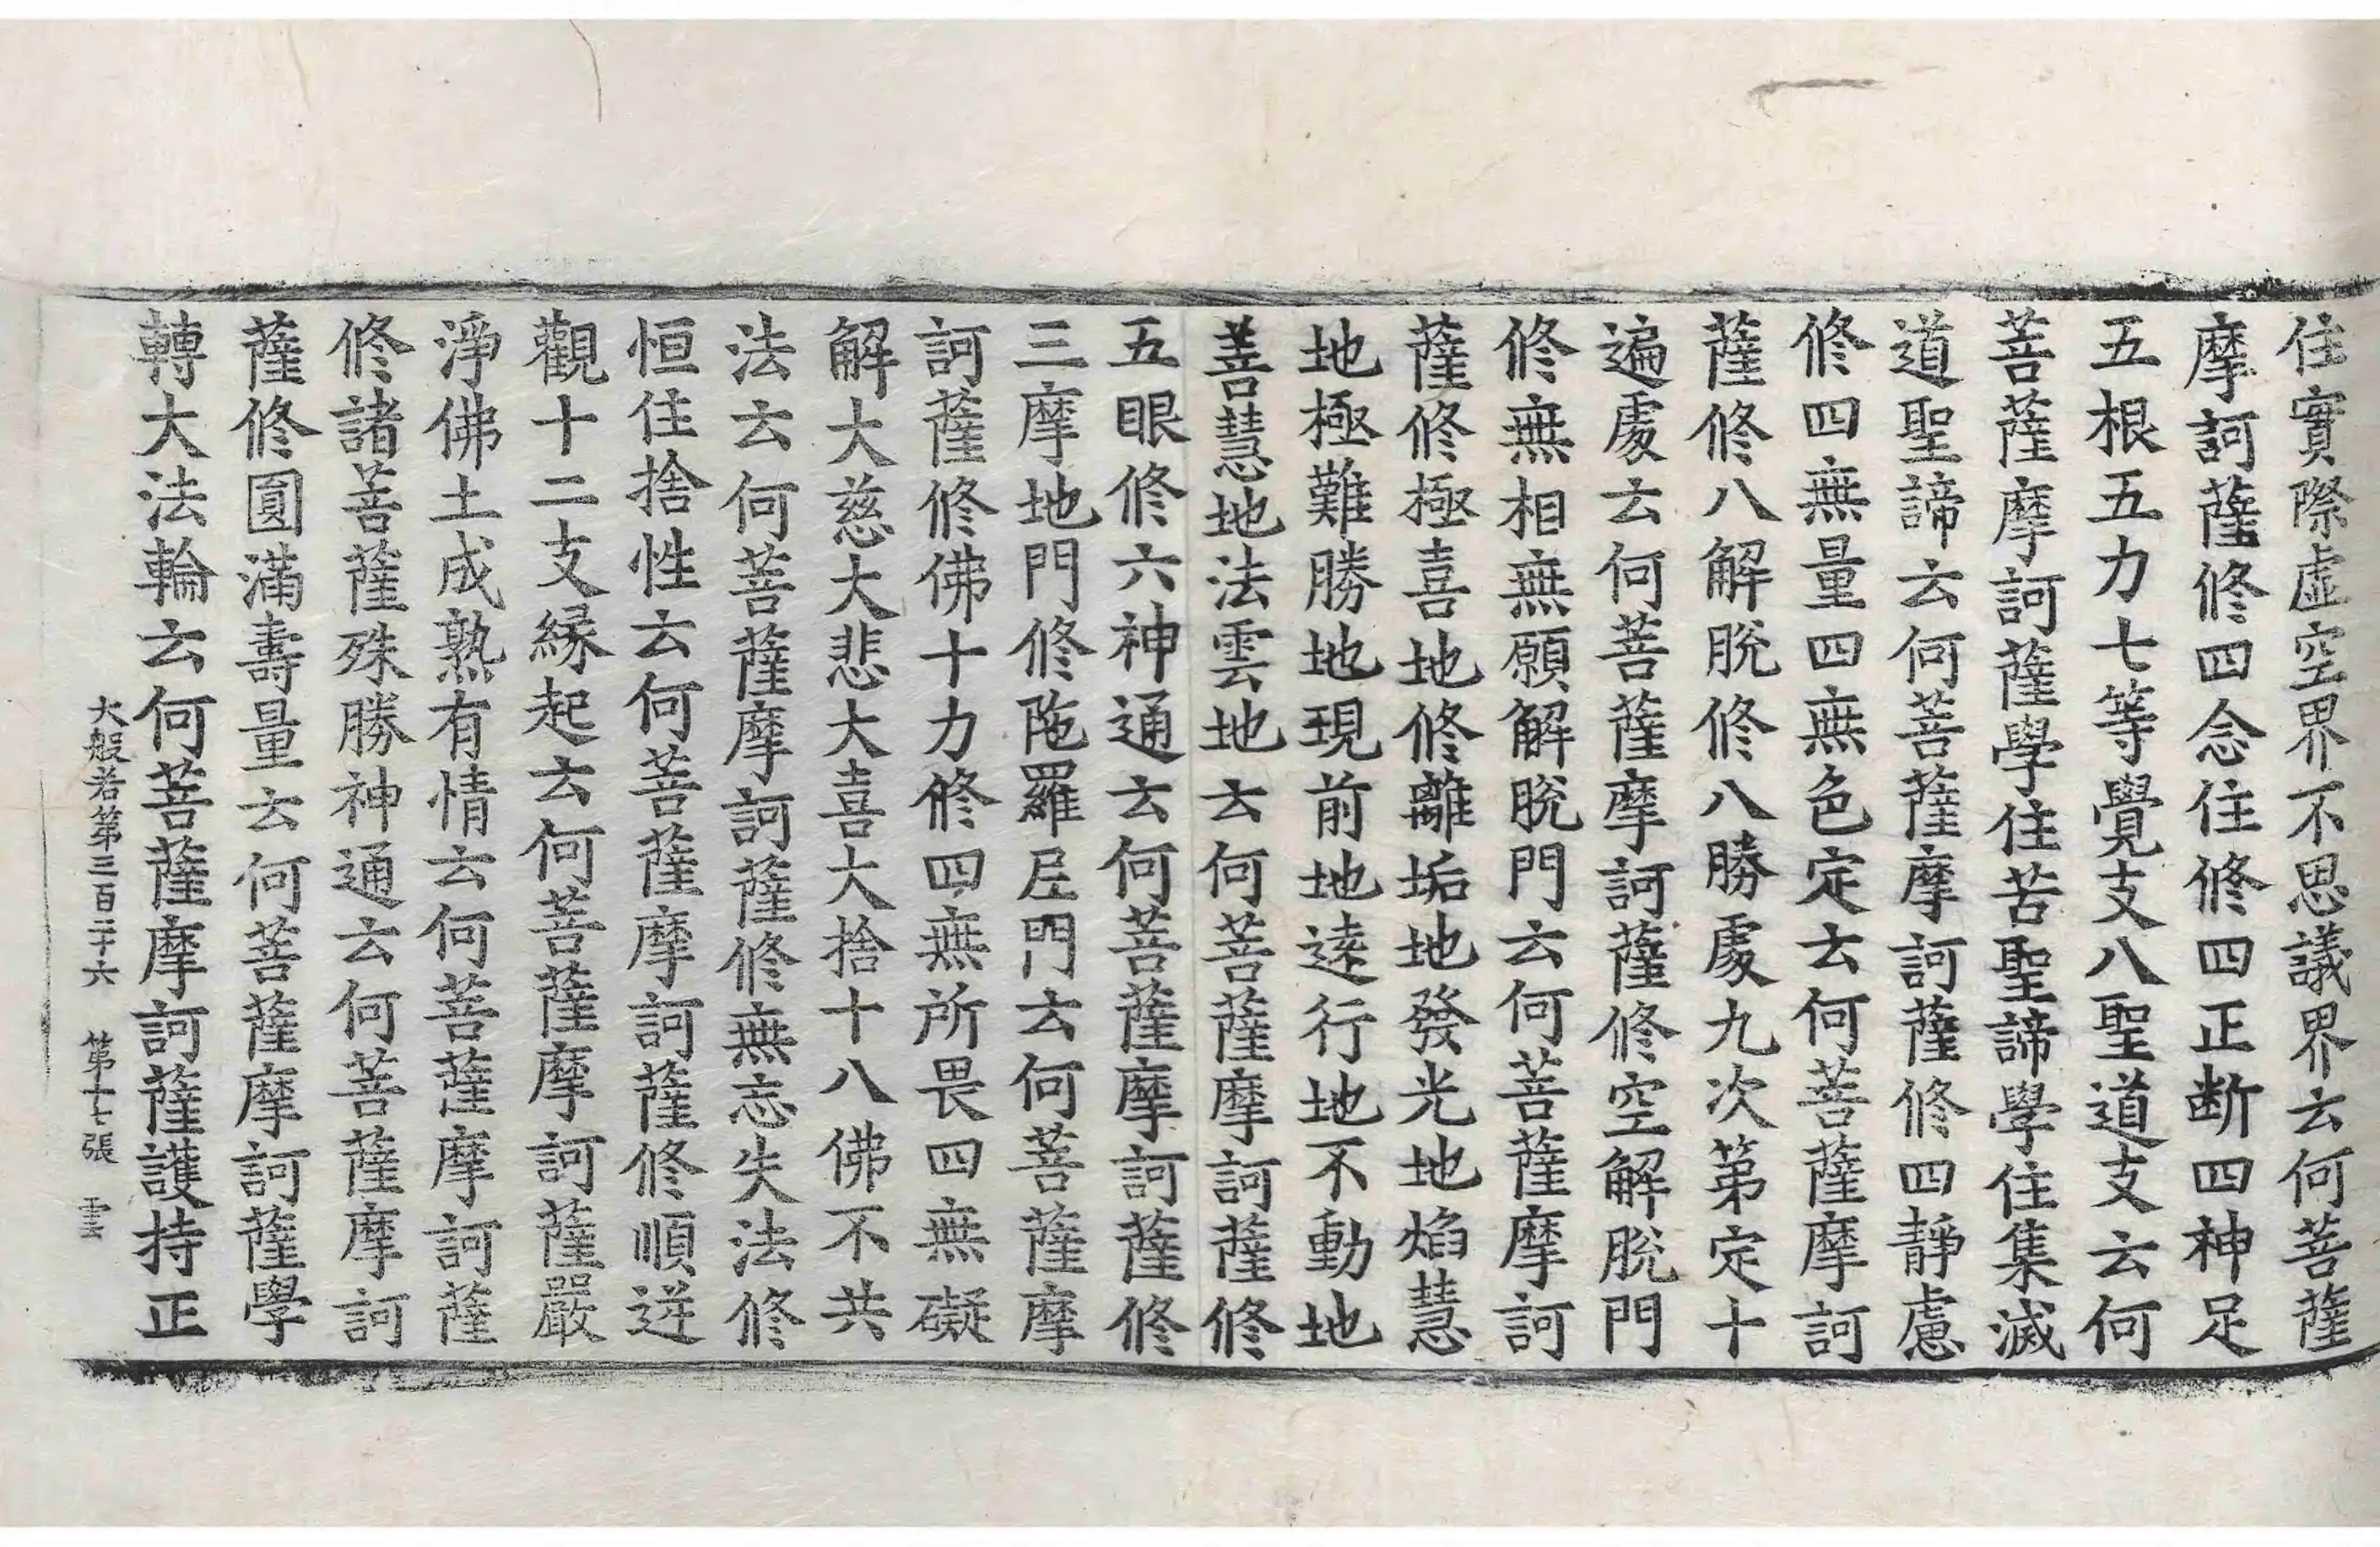 住實際虛空界不思議界云何菩薩
摩訶薩修四念住修四正斷四神足
五根五力七等覺支八聖道支云何
菩薩摩訶薩學住苦聖諦學住集滅
道聖諦云何菩薩摩訶薩修四靜慮
修四無量四無色定云何菩薩摩訶
薩修八解脫修八勝處九次第定十
遍處云何菩薩摩訶薩修空解脫門
修無相無願解脫門云何菩薩摩訶
薩修極喜地修離垢地發光地焰慧
地極難勝地現前地遠行地不動地
善慧地法雲地云何菩薩摩訶薩修
五眼修六神通云何菩薩摩訶薩修
三摩地門修陁羅尼門云何菩薩摩
訶薩修佛十力修四無所畏四無礙
解大慈大悲大喜大捨十八佛不共
法云何菩薩摩訶薩修無忘失法修
恒住捨性云何菩薩摩訶薩修順逆
觀十二支緣起云何菩薩摩訶薩嚴
淨佛土成熟有情云何菩薩摩訶薩
修諸菩薩殊勝神通云何菩薩摩訶
薩修圓滿壽量云何菩薩摩訶薩學
轉大法輪云何菩薩摩訶薩護持正
大般若第三百二十六 第十七張 雲